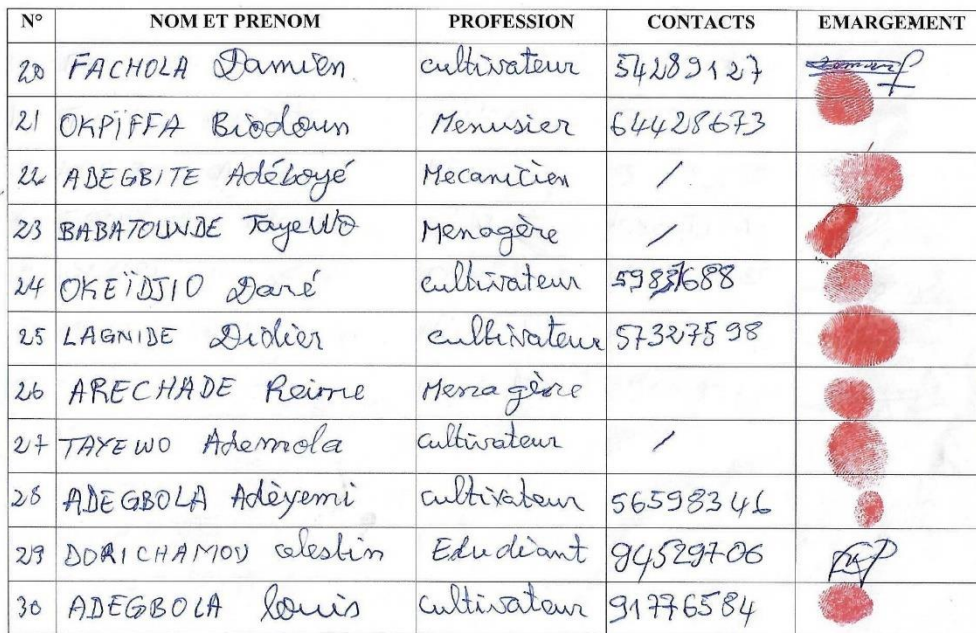 N° NOM ET PRENOM PROFESSION CONTACTS EMARGEMENT
20 FACHOLA Damien cultivateur 54289127
21 OKPÏFFA Biodoun Menusier 64428673
22 ADEGBITE Adéboyé Mecanicien /
23 BABATOUNDE TayeWO Menagère /
24 OKEÏDJIO Daré cultivateur
25 LAGNIDE Didier cultivateur 57327598
26 ARECHADE Reine Menagère
27 TAYEWO Ademola cultivateur /
28 ADEGBOLA Adèyemi cultivateur 56598346
29 DORICHAMOU celestin Etudiant 94529706
30 ADEGBOLA louis cultivateur 91776584